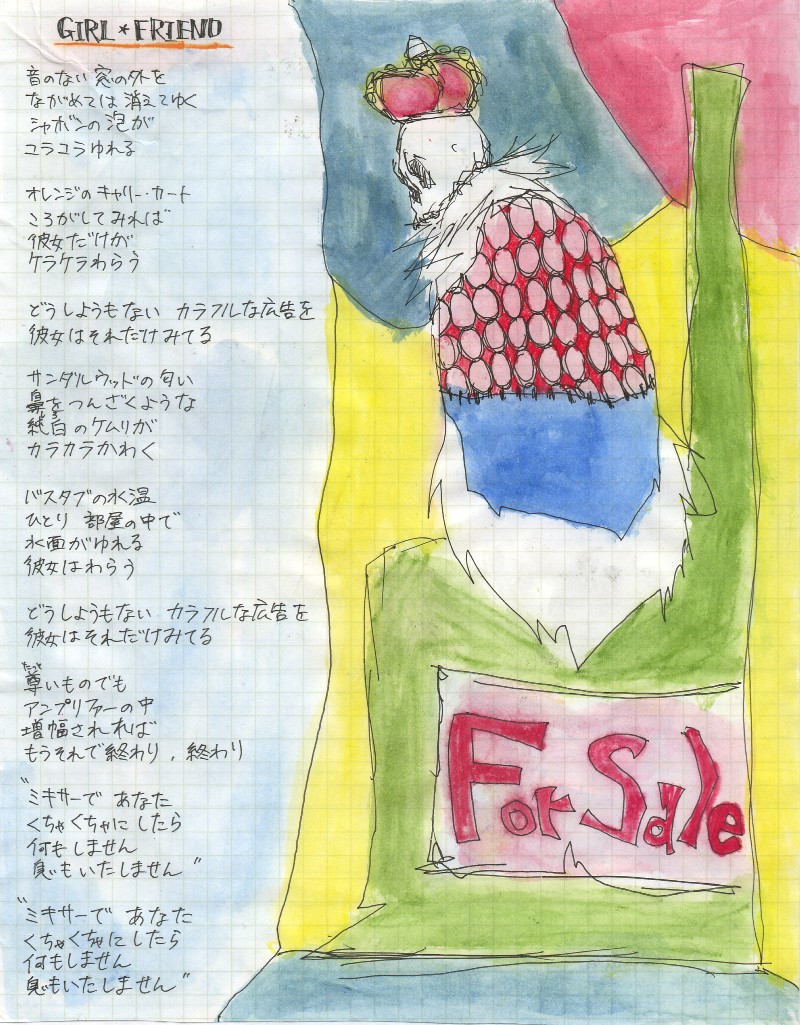 GIRL★FRIEND
音のない窓の外を
ながめては消えてゆく
シャボンの泡が
ユラユラゆれる
オレンジのキャリー・カート
ころがしてみれば
彼女だけが
ケラケラわらう
どうしようもない カラフルな広告を
彼女はそれだけみてる
サンダルウッドの匂い
鼻をつんざくような
純白のケムリが
カラカラかわく
バスタブの水温
ひとり 部屋の中で
水面がゆれる
彼女はわらう
どうしようもない カラフルな広告を
彼女はそれだけみてる
たっと
尊いものでも
アンプリファーの中
増幅されれば
もうそれで終わり,終わり
"ミキサーで あなた
くちゃくちゃに したら
何もしません
息もいたしません"
"ミキサーで あなた
くちゃくちゃに したら
何もしません
息もいたしません"
For Sale